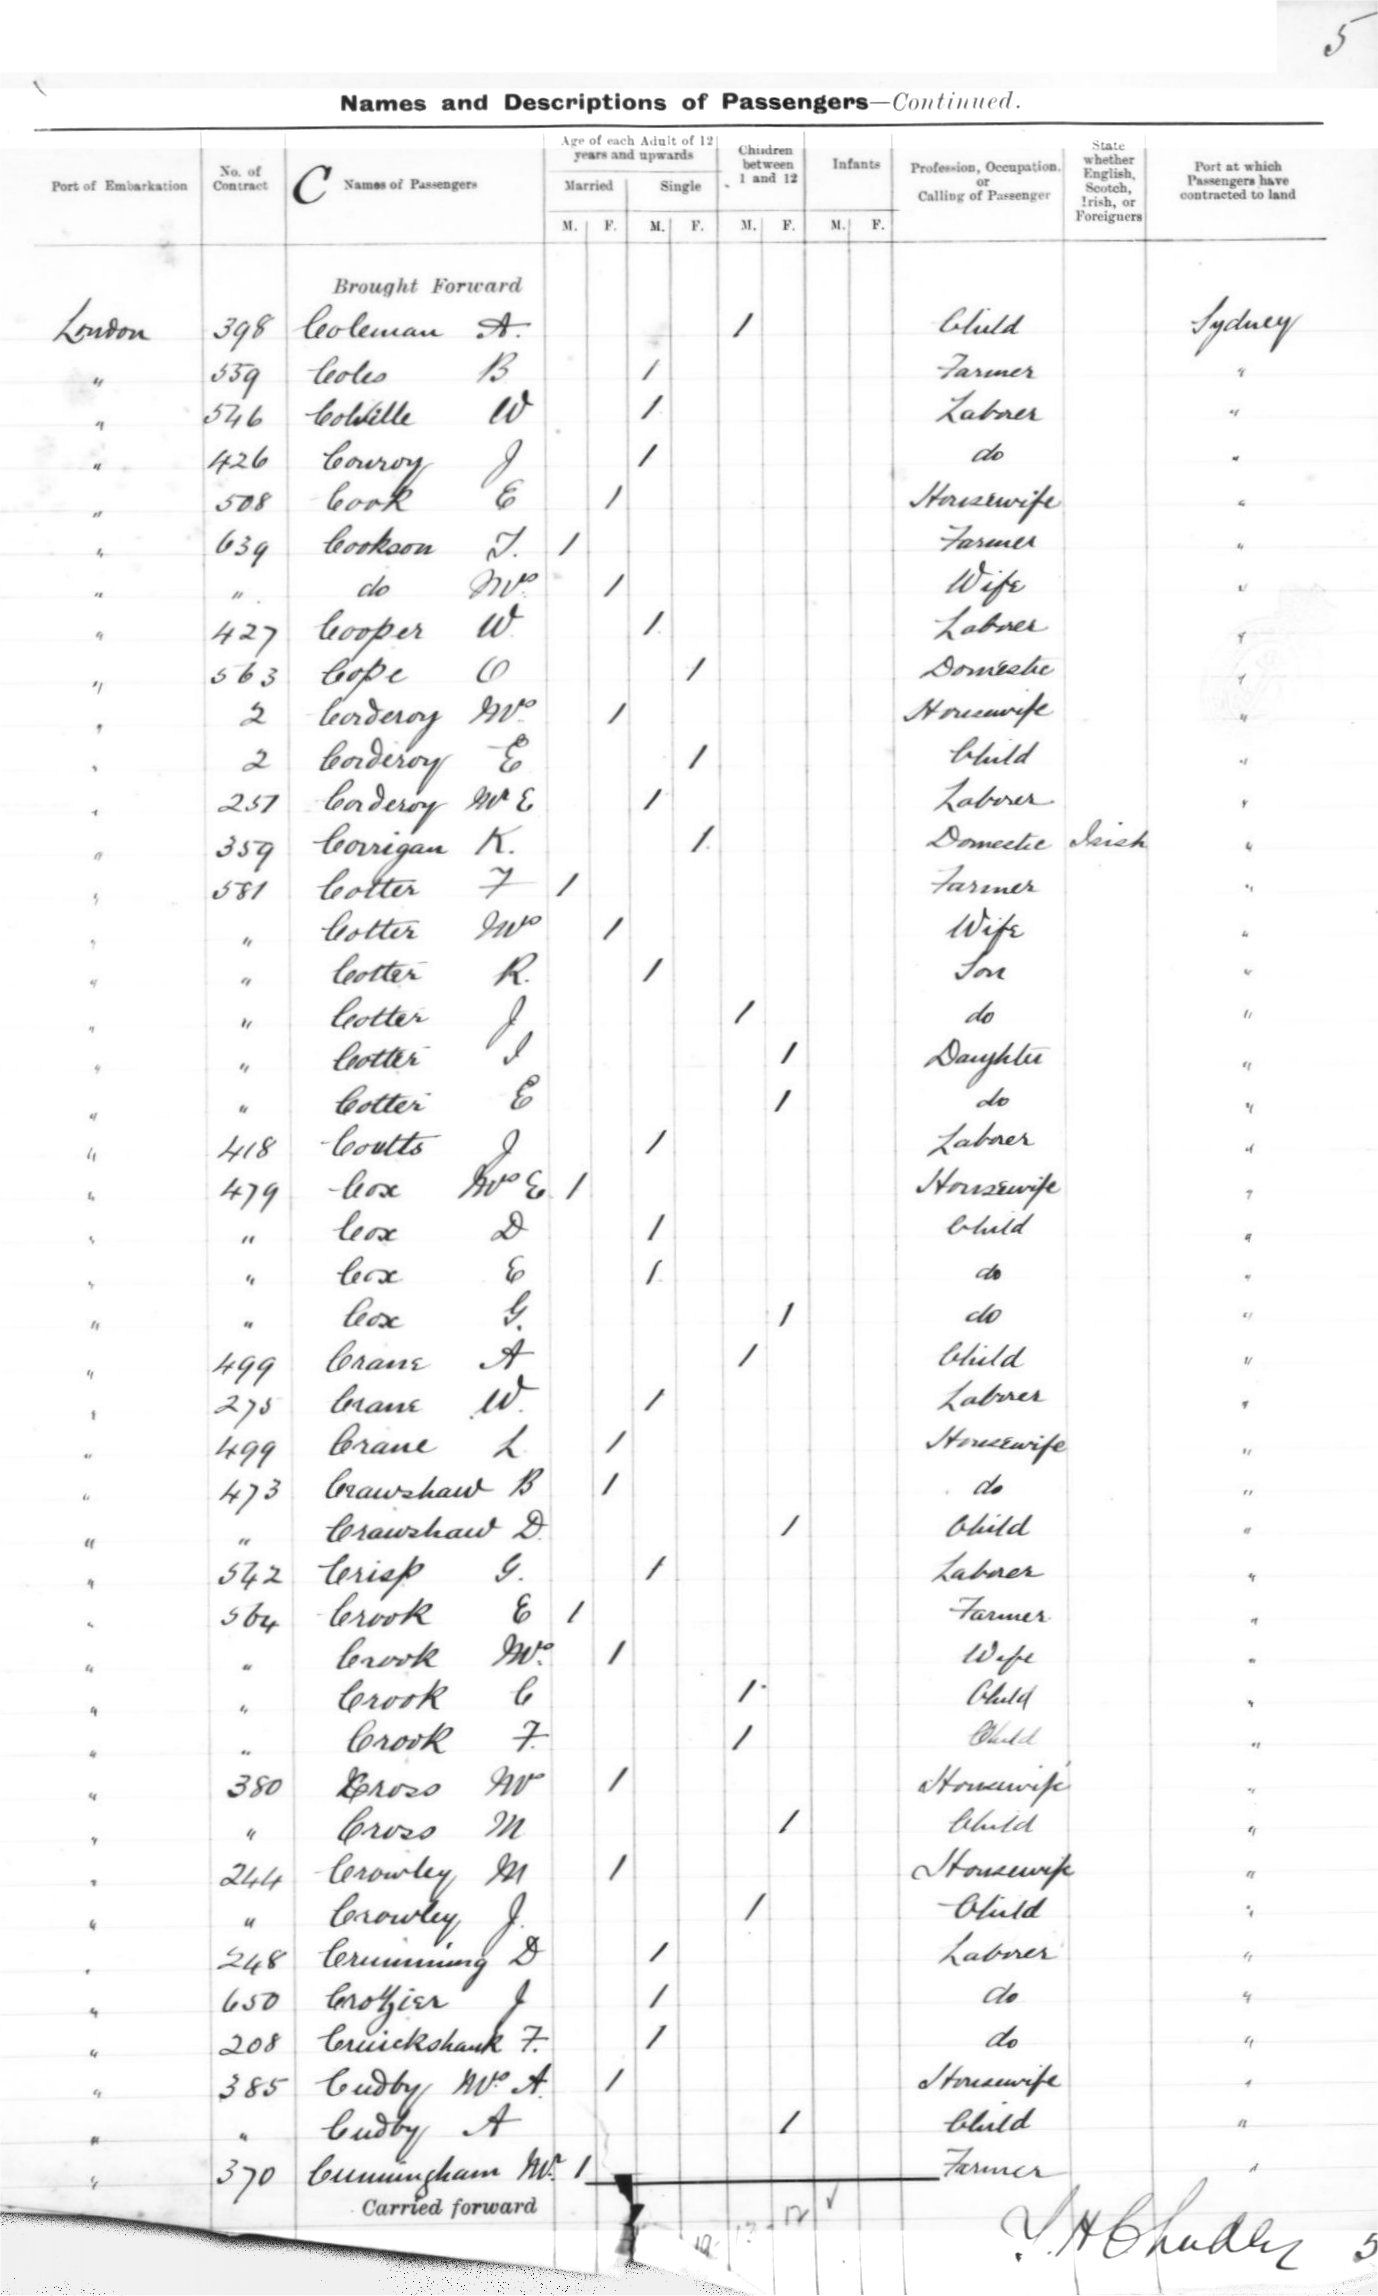 5
Names and Descriptions of Passengers—Continued.
Port of Embarkation | No. of Contract | C Names of Passengers | Age of each Adult of 12 years and upwards | Children between 1 and 12 | Infants | Profession, Occupation, or Calling of Passenger | State whether English, Scotch, Irish, or Foreigners | Port at which Passengers have contracted to land
Married | Single
M. F. M. F. M. F. M. F.
Brought Forward
London 398 Coleman A. 1 Child Sydney
" 559 Coles B 1 Farmer "
" 546 Colville W 1 Laborer "
" 426 Conroy J 1 do "
" 508 Cook E 1 Housewife "
" 639 Cookson T. 1 Farmer "
" " do Mrs 1 Wife "
" 427 Cooper W 1 Laborer "
" 563 Cope O 1 Domestic "
" 2 Corderoy Mrs 1 Housewife "
" 2 Corderoy E 1 Child "
" 251 Corderoy Mr E 1 Laborer "
" 359 Corrigan K. 1 Domestic Irish "
" 581 Cotter F 1 Farmer "
" " Cotter Mrs 1 Wife "
" " Cotter R. 1 Son "
" " Cotter J 1 do "
" " Cotter I 1 Daughter "
" " Cotter E 1 do "
" 418 Coutts J 1 Laborer "
" 479 Cox Mrs E 1 Housewife "
" " Cox D 1 Child "
" " Cox E 1 do "
" " Cox G. 1 do "
" 499 Crane A 1 Child "
" 275 Crane W. 1 Laborer "
" 499 Crane L 1 Housewife "
" 473 Crawshaw B 1 do "
" " Crawshaw D. 1 Child "
" 542 Crisp G. 1 Laborer "
" 564 Crook E 1 Farmer "
" " Crook Mrs 1 Wife "
" " Crook C 1 Child "
" " Crook F. 1 Child "
" 380 Cross Mrs 1 Housewife "
" " Cross M 1 Child "
" 244 Crowley M 1 Housewife "
" " Crowley J. 1 Child "
" 248 Crumming D 1 Laborer "
" 650 Crozier J 1 do "
" 208 Cruickshank F. 1 do "
" 385 Cudby Mrs A. 1 Housewife "
" " Cudby A 1 Child "
" 370 Cunningham Mr. 1 Farmer "
Carried forward
5